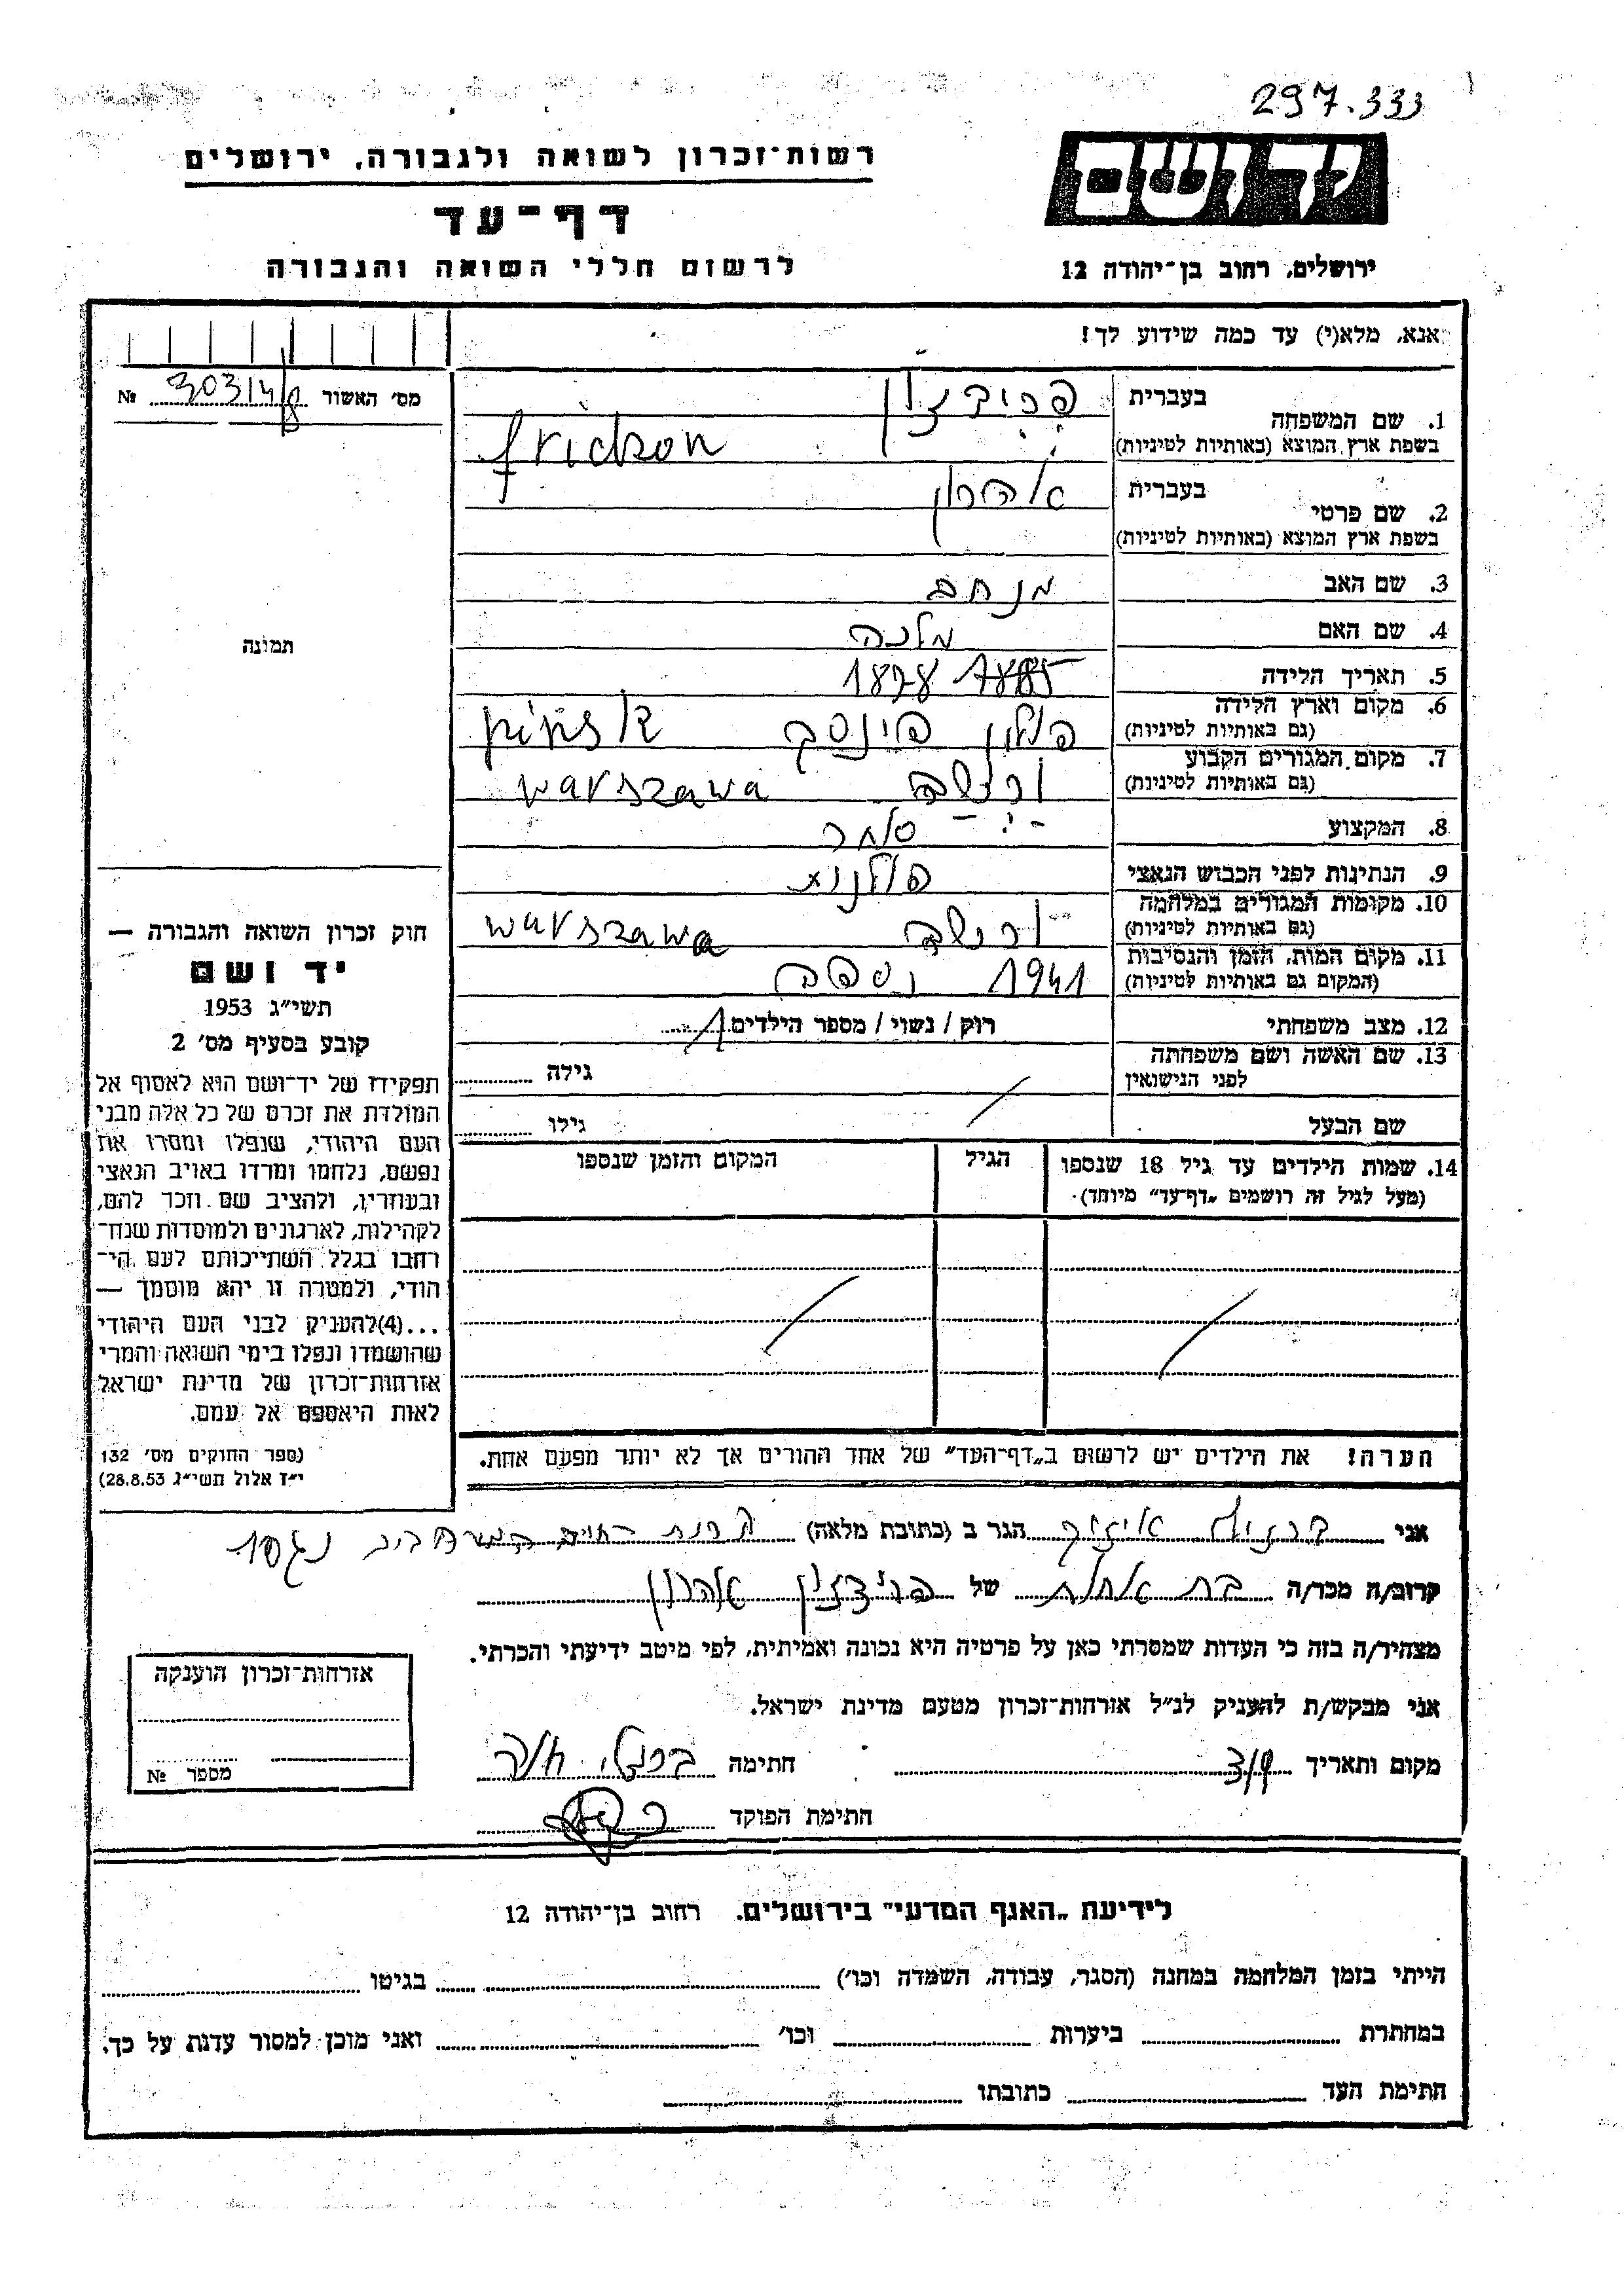 297.333
רשות־זכרון לשואה ולגבורה, ירושלים
דף־עד
לרשום חללי השואה והגבורה
יד ושם
ירושלים, רחוב בן־יהודה 12
אנא, מלא(י) עד כמה שידוע לך!
מס׳ האשור 30314/8 №
1. שם המשפחה
בעברית פרידזון
בשפת ארץ המוצא (באותיות לטיניות) fridson
2. שם פרטי
בעברית אהרון
בשפת ארץ המוצא (באותיות לטיניות)
3. שם האב מנחם
4. שם האם מלכה
5. תאריך הלידה 1885 1878
6. מקום וארץ הלידה
(גם באותיות לטיניות) פולין פינסק
7. מקום המגורים הקבוע
(גם באותיות לטיניות) ורשה warszawa
8. המקצוע סוחר
9. הנתינות לפני הכבוש הנאצי פולנית
10. מקומות המגורים במלחמה
(גם באותיות לטיניות) ורשה warszawa
11. מקום המות, הזמן והנסיבות
(המקום גם באותיות לטיניות) 1941 נספה
12. מצב משפחתי רוק / נשוי / מספר הילדים 1
13. שם האשה ושם משפחתה
לפני הנישואין גילה
שם הבעל גילו
14. שמות הילדים עד גיל 18 שנספו הגיל המקום והזמן שנספו
(מעל לגיל זה רושמים „דף־עד״ מיוחד).
הערה! את הילדים יש לרשום ב„דף־העד״ של אחד ההורים אך לא יותר מפעם אחת.
תמונה
חוק זכרון השואה והגבורה —
יד ושם
תשי״ג 1953
קובע בסעיף מס׳ 2
תפקידו של יד־ושם הוא לאסוף אל
המולדת את זכרם של כל אלה מבני
העם היהודי, שנפלו ומסרו את
נפשם, נלחמו ומרדו באויב הנאצי
ובעוזריו, ולהציב שם וזכר להם,
לקהילות, לארגונים ולמוסדות שנח־
רחבו בגלל השתייכותם לעם הי־
הודי, ולמטרה זו יהא מוסמך —
...(4)להעניק לבני העם היהודי
שהושמדו ונפלו בימי השואה והמרי
אזרחות־זכרון של מדינת ישראל
לאות היאספם אל עמם.
(ספר החוקים מס׳ 132
י״ז אלול תשי״ג 28.8.53)
אני הגר ב (כתובת מלאה)
קרוב/ה מכר/ה בת אחות של פרידזון אהרון
מצהיר/ה בזה כי העדות שמסרתי כאן על פרטיה היא נכונה ואמיתית, לפי מיטב ידיעתי והכרתי.
אני מבקש/ת להעניק לנ״ל אזרחות־זכרון מטעם מדינת ישראל.
מקום ותאריך חתימה
חתימת הפוקד
אזרחות־זכרון הוענקה
מספר №
לידיעת „האגף המדעי״ בירושלים. רחוב בן־יהודה 12
הייתי בזמן המלחמה במחנה (הסגר, עבודה, השמדה וכו׳) בגיטו
במחתרת ביערות וכו׳ ואני מוכן למסור עדות על כך.
חתימת העד כתובתו